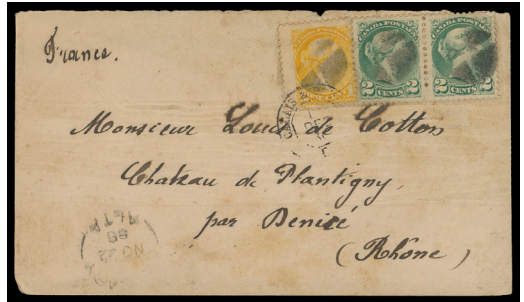 France.
CANADA POSTAGE
CANADA POSTAGE
2 CENTS 2
2 CENTS 2
CALAIS
Monsieur Louis de Cotton
Chateau de Plantigny,
par Denicé
(Rhône)
NO 22
89